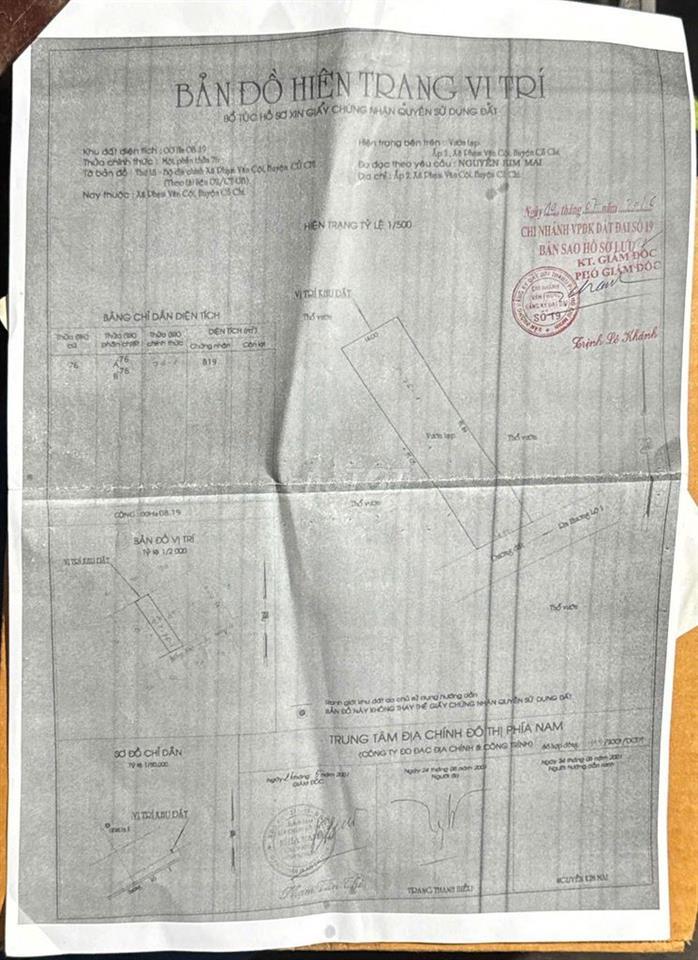 BẢN ĐỒ HIỆN TRẠNG VỊ TRÍ
BỔ TÚC HỒ SƠ XIN GIẤY CHỨNG NHẬN QUYỀN SỬ DỤNG ĐẤT
Khu đất diện tích : 00 Ha 08.19
Thửa chính thức : Một phần thửa 76
Tờ bản đồ : Thứ 18 - Bộ địa chính Xã Phạm Văn Cội, Huyện CỦ CHI
(Theo tài liệu 02/CT-UB)
Nay thuộc : Xã Phạm Văn Cội, Huyện Củ Chi
Hiện trạng bên trên : Vườn tạp
Ấp 1, Xã Phạm Văn Cội, Huyện Củ Chi
Đo đạc theo yêu cầu : NGUYỄN KIM MAI
Địa chỉ : Ấp 2, Xã Phạm Văn Cội, Huyện Củ Chi
HIỆN TRẠNG TỶ LỆ 1/500
Ngày tháng 07 năm 2016
CHI NHÁNH VPĐK ĐẤT ĐAI SỐ 19
BẢN SAO HỒ SƠ LƯU
KT. GIÁM ĐỐC
PHÓ GIÁM ĐỐC
CHI NHÁNH
VĂN PHÒNG
ĐĂNG KÝ ĐẤT ĐAI
SỐ 19
Trịnh Lê Khánh
BẢNG CHỈ DẪN DIỆN TÍCH
Thửa (BĐ) cũ
Thửa (BĐ) phân chiết
Thửa (BĐ) chính thức
DIỆN TÍCH (m²)
Chứng nhận
Còn lại
76
A 76
819
B 76
CỘNG : 00Ha 08.19
VỊ TRÍ KHU ĐẤT
Thổ vườn
14.00
Vườn tạp
Thổ vườn
Thổ vườn
Đường đất
Thổ vườn
BẢN ĐỒ VỊ TRÍ
Tỷ lệ 1/2.000
VỊ TRÍ KHU ĐẤT
Ranh giới khu đất do chủ sử dụng hướng dẫn
BẢN ĐỒ NÀY KHÔNG THAY THẾ GIẤY CHỨNG NHẬN QUYỀN SỬ DỤNG ĐẤT
TRUNG TÂM ĐỊA CHÍNH ĐÔ THỊ PHÍA NAM
(CÔNG TY ĐO ĐẠC ĐỊA CHÍNH & CÔNG TRÌNH)
Số hợp đồng
SƠ ĐỒ CHỈ DẪN
Tỷ lệ 1/50.000
VỊ TRÍ KHU ĐẤT
năm 2001
GIÁM ĐỐC
Ngày 24 tháng 08 năm 2001
Người đo
Ngày 24 tháng 08 năm 2001
Người hướng dẫn ranh
Phạm Văn Thê
TRANG THANH HIẾU
NGUYỄN KIM MAI